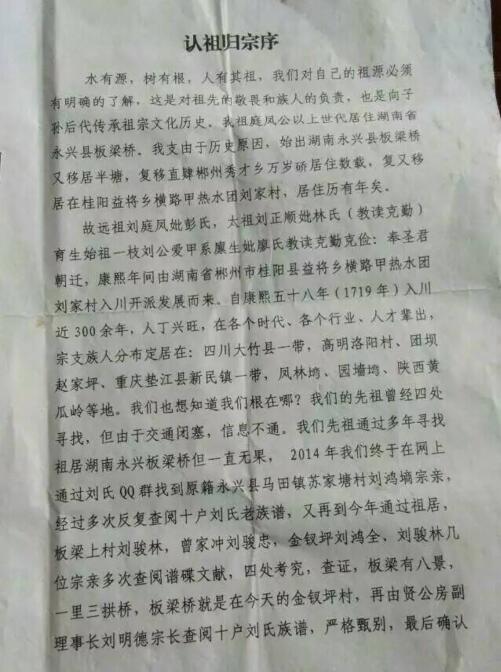 认祖归宗序
水有源，树有根，人有其祖，我们对自己的祖源必须
有明确的了解，这是对祖先的敬畏和族人的负责，也是向子
孙后代传承祖宗文化历史。我祖庭凤公以上世代居住湖南省
永兴县板梁桥。我支由于历史原因，始出湖南永兴县板梁桥
又移居半塘，复移直肆郴州秀才乡万岁硚居住数载，复又移
居在桂阳益将乡横路甲热水团刘家村，居住历有年矣。
故远祖刘庭凤妣彭氏，太祖刘正顺妣林氏（教读克勤）
育生始祖一枝刘公爱甲系廪生妣廖氏教读克勤克俭：奉圣君
朝迁，康熙年间由湖南省郴州市桂阳县益将乡横路甲热水团
刘家村入川开派发展而来。自康熙五十八年（1719年）入川
近300余年，人丁兴旺，在各个时代、各个行业、人才辈出，
宗支族人分布定居在：四川大竹县一带，高明洛阳村、团坝
赵家坪、重庆垫江县新民镇一带，凤林垮、园墙垮、陕西黄
瓜岭等地。我们也想知道我们根在哪？我们的先祖曾经四处
寻找，但由于交通闭塞，信息不通。我们先祖通过多年寻找
祖居湖南永兴板梁桥但一直无果， 2014年我们终于在网上
通过刘氏QQ群找到原籍永兴县马田镇苏家塘村刘鸿墒宗亲，
经过多次反复查阅十户刘氏老族谱，又再到今年通过祖居，
板梁上村刘骏林，曾家冲刘骏忠，金钗坪刘鸿全，刘骏林几
位宗亲多次查阅谱碟文献，四处考究，查证，板梁有八景，
一里三拱桥，板梁桥就是在今天的金钗坪村，再由贤公房副
理事长刘明德宗长查阅十户刘氏族谱，严格甄别，最后确认